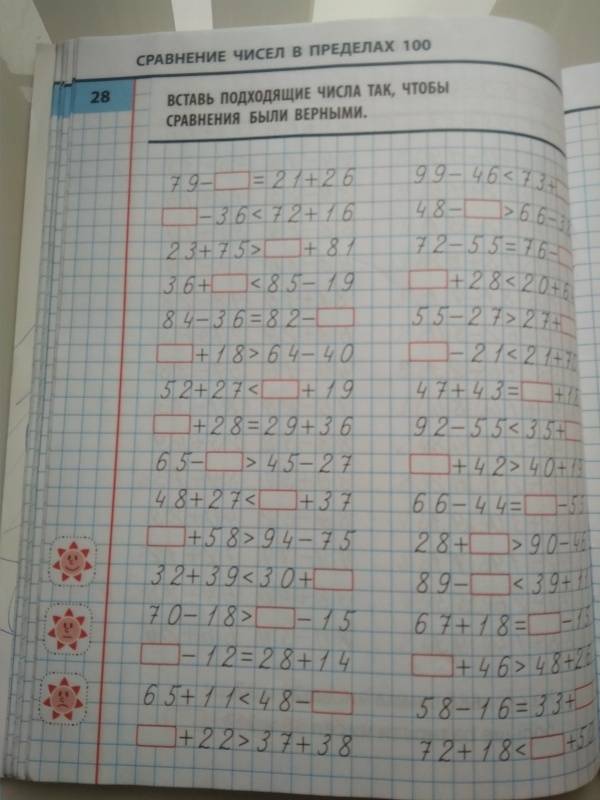 СРАВНЕНИЕ ЧИСЕЛ В ПРЕДЕЛАХ 100
28
ВСТАВЬ ПОДХОДЯЩИЕ ЧИСЛА ТАК, ЧТОБЫ
СРАВНЕНИЯ БЫЛИ ВЕРНЫМИ.
79-□=21+26
□-36<72+16
23+75>□+81
36+□<85-19
84-36=82-□
□+18>64-40
52+27<□+19
□+28=29+36
65-□>45-27
48+27<□+37
□+58>94-75
32+39<30+□
70-18>□-15
□-12=28+14
65+11<48-□
□+22>37+38
99-46<73+□
48-□>66-
72-55=76-□
□+28<20+
55-27>27+□
□-21<21+
47+43=□+
92-55<35+□
□+42>40+
66-44=□-
28+□>90-46
89-□<39+
67+18=□-
□+46>48+26
58-16=33+□
72+18<□+